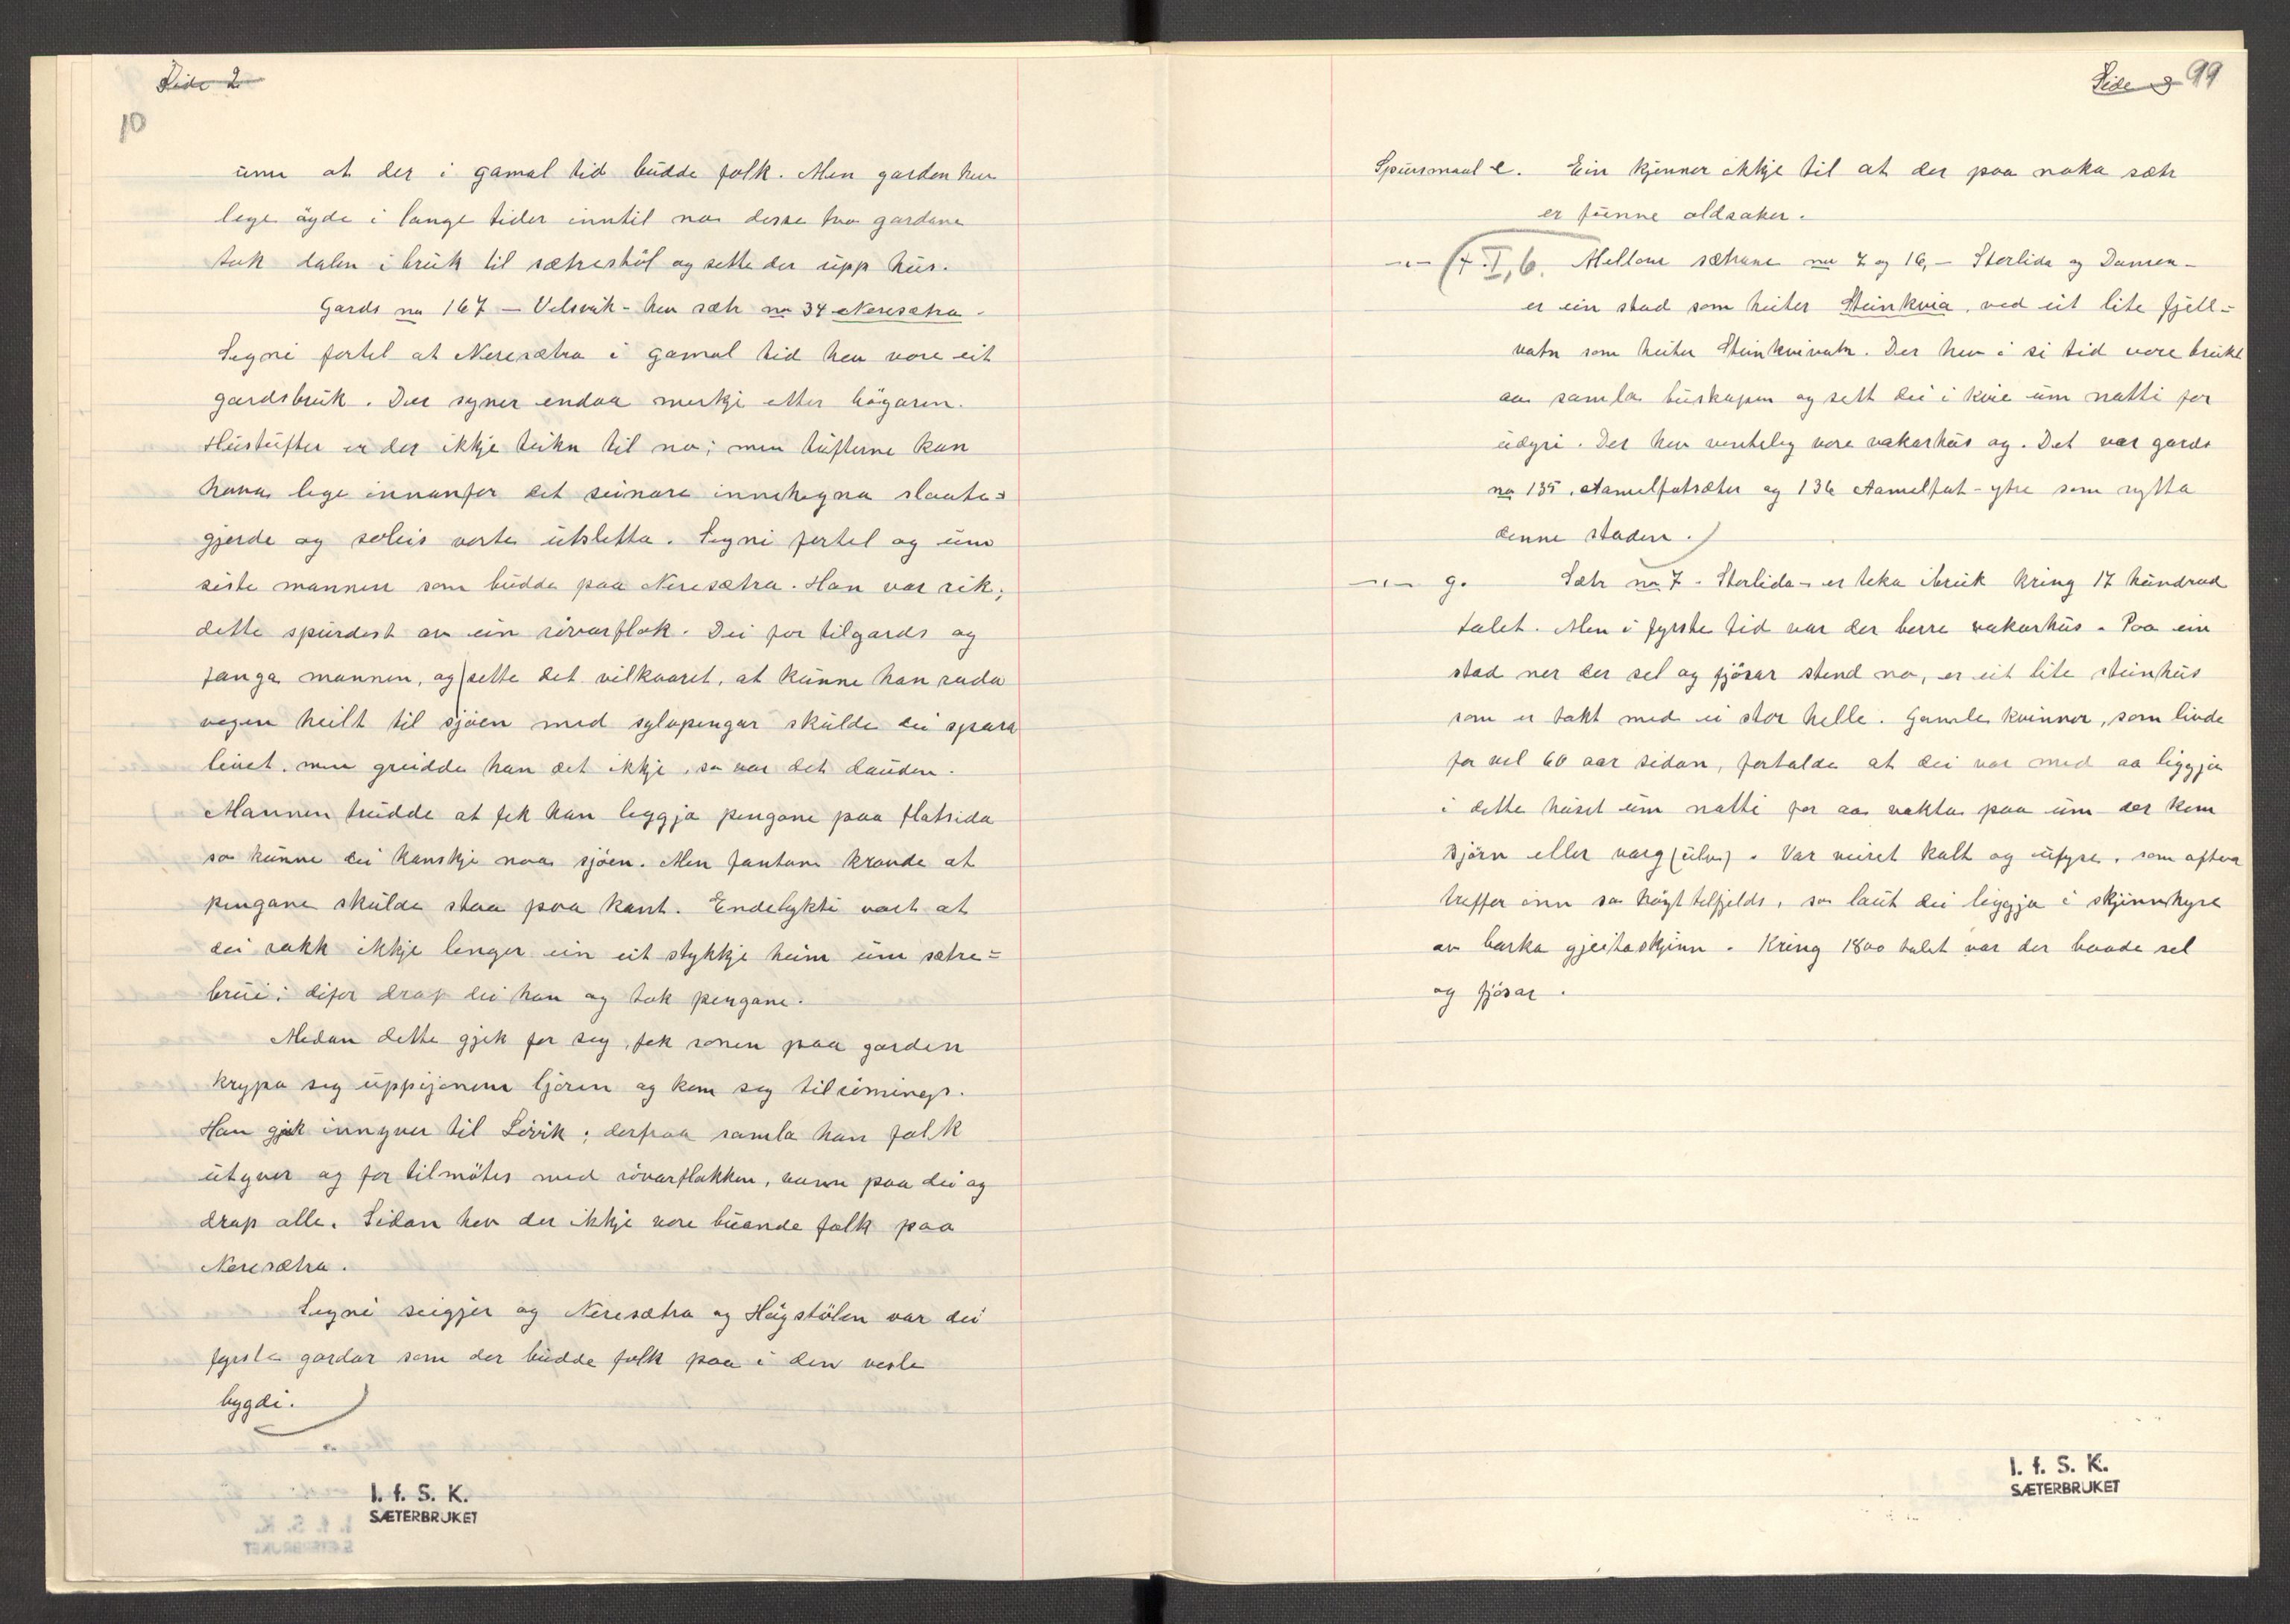 Side 2
10
um at der i gamal tid budde folk. Men garden hev
lege öyde i lange tider inntil no desse tvo gardane
tok dalen i bruk til sætrestöl og sette der upp hus.
Gards no 167 – Velsvik – hev sætr no 34 Neresætra.
Segni fortel at Neresætra i gamal tid hev vore eit
gardsbruk. Der syner endaa merkje etter högaren.
Hustufter er der ikkje teikn til no; men tufterne kan
hava lege innanfor det seinare innhegna slaatte=
gjerde og soleis vorte utsletta. Segni fortel og um
siste mannen som budde paa Neresætra. Han var rik;
dette spurdest av ein rövarflok. Dei for tilgards og
fanga mannen, og sette det vilkaaret, at kunne han rada
vegen heilt til sjöen med sylvpengar skulde dei spara
livet, men greidde han det ikkje, so var det dauden.
Mannen trudde at fek han leggja pengane paa flatsida
so kunne dei kanskje naa sjöen. Men fantane kravde at
pengane skulde staa paa kant. Endelykti vart at
dei rakk ikkje lenger ein eit stykkje heim um sætre=
brui; difor drap dei han og tok pengane.
Medan dette gjek for seg, fek sonen paa garden
krypa seg uppigjenom ljoren og kom seg tilrömings.
Han gjek innyver til Lövik; derfraa samla han folk
utyver og for tilmötes med rövarflokken, vann paa dei og
drap alle. Sidan hev der ikkje vore buande folk paa
Neresætra.
Segni seigjer og Neresætra og Högstölen var dei
fyrste gardar som der budde folk paa i den vesle
bygdi.
I. f. S. K.
SÆTERBRUKET
Side 3 99
Spursmaal e. Ein kjenner ikkje til at der paa noka sætr
er funne oldsaker.
–"– f. I, 6. Mellom sætrane no 7 og 16, – Storlida og Dansen –
er ein stad som heiter Steinkvia, ved eit lite fjell=
vatn som heiter Steinkvivatn. Der hev i si tid vore brukt
aa samla buskapen og sett dei i kvie um natti for
udyri. Der hev venteleg vore vakarhus og. Det var gards
no 135, Aamelfotsæter og 136 Aamelfot-ytre som nytta
denne staden.
–"– g. Sætr no 7 – Storlida – er teka ibruk kring 17 hundrad
talet. Men i fyrste tid var der berre vakarhus. Paa ein
stad ner der sel og fjösar stend no, er eit lite steinhus
som er takt med ei stor helle. Gamle kvinnor, som livde
for vel 60 aar sidan, fortalde at dei var med aa liggja
i dette huset um natti for aa vakta paa um der kom
björn eller varg (ulv). Var veiret kalt og ufyse, som oftera
treffer inn so högt tilfjelds, so laut dei liggja i skjinnhyre
av barka gjeitaskjinn. Kring 1800 talet var der baade sel
og fjösar.
I. f. S. K.
SÆTERBRUKET